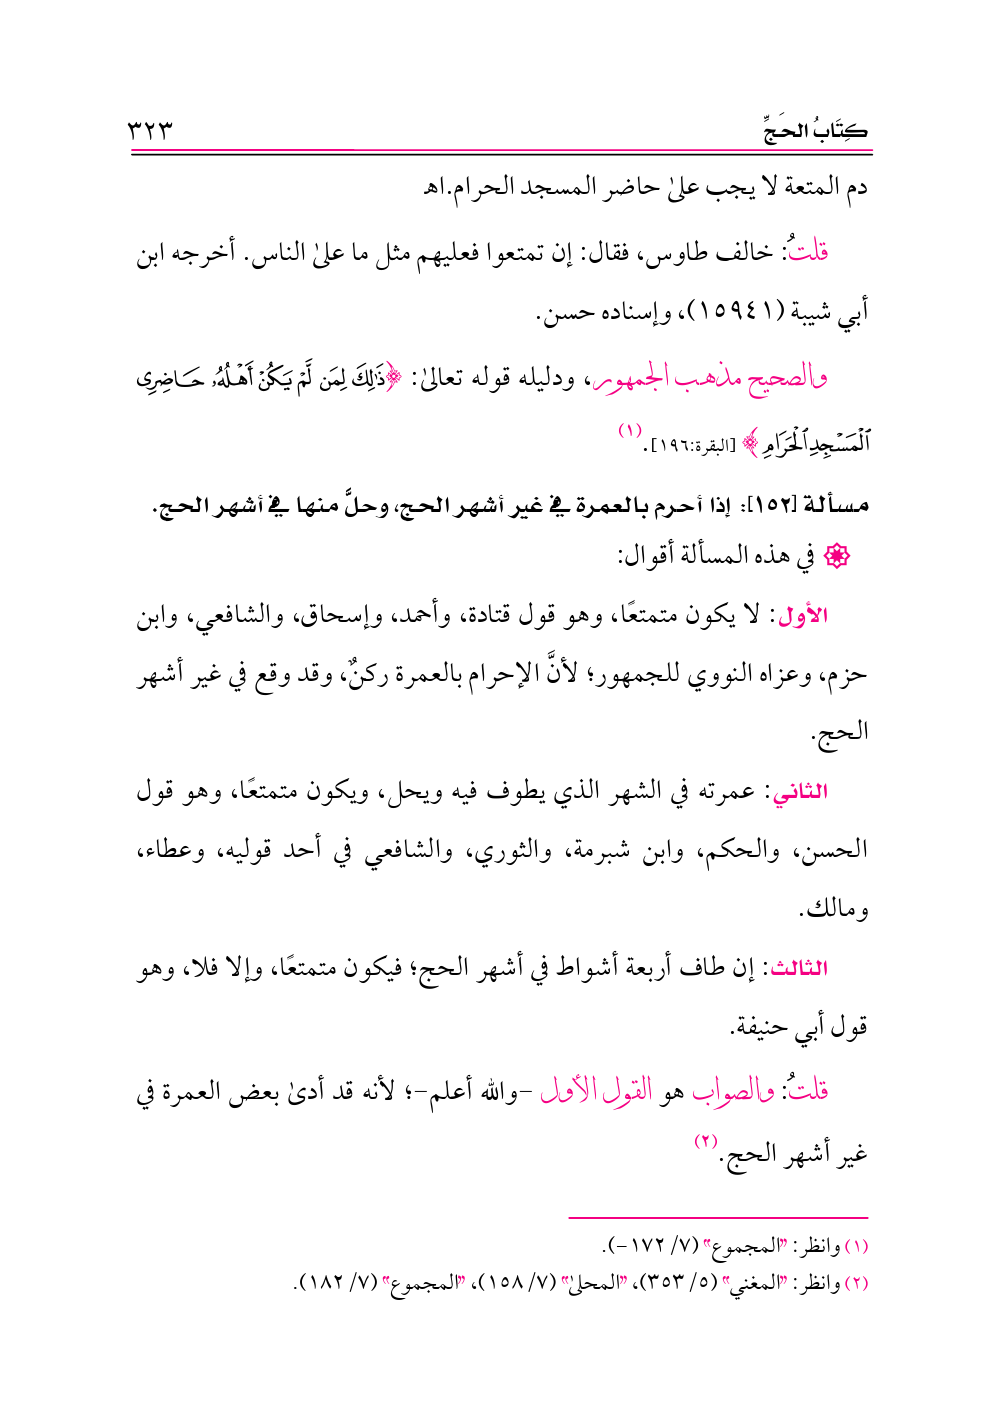 كِتَابُ الحَجِّ ٣٢٣
دم المتعة لا يجب علىٰ حاضر المسجد الحرام.اهـ
قلتُ: خالف طاوس، فقال: إن تمتعوا فعليهم مثل ما علىٰ الناس. أخرجه ابن
أبي شيبة (١٥٩٤١)، وإسناده حسن.
والصحيح مذهب الجمهور، ودليله قوله تعالىٰ: ﴿ذَٰلِكَ لِمَن لَّمْ يَكُنْ أَهْلُهُۥ حَاضِرِى
ٱلْمَسْجِدِ ٱلْحَرَامِ﴾ [البقرة:١٩٦].(١)
مسألة [١٥٢]: إذا أحرم بالعمرة في غير أشهر الحج، وحلَّ منها في أشهر الحج.
في هذه المسألة أقوال:
الأول: لا يكون متمتعًا، وهو قول قتادة، وأحمد، وإسحاق، والشافعي، وابن
حزم، وعزاه النووي للجمهور؛ لأنَّ الإحرام بالعمرة ركنٌ، وقد وقع في غير أشهر
الحج.
الثاني: عمرته في الشهر الذي يطوف فيه ويحل، ويكون متمتعًا، وهو قول
الحسن، والحكم، وابن شبرمة، والثوري، والشافعي في أحد قوليه، وعطاء،
ومالك.
الثالث: إن طاف أربعة أشواط في أشهر الحج؛ فيكون متمتعًا، وإلا فلا، وهو
قول أبي حنيفة.
قلتُ: والصواب هو القول الأول -والله أعلم-؛ لأنه قد أدىٰ بعض العمرة في
غير أشهر الحج.(٢)
(١) وانظر: "المجموع" (٧/ ١٧٢-).
(٢) وانظر: "المغني" (٥/ ٣٥٣)، "المحلىٰ" (٧/ ١٥٨)، "المجموع" (٧/ ١٨٢).